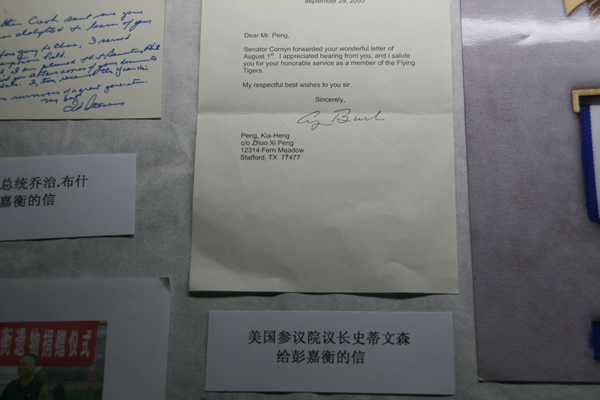 sent me your
delighted to learn of your
going to China, I served
September 29,
Dear Mr. Peng,
Senator Cornyn forwarded your wonderful letter of
August 1st. I appreciated hearing from you, and I salute
you for your honorable service as a member of the Flying
Tigers.
My respectful best wishes to you sir.
Sincerely,
Peng, Kia-Heng
c/o Zhuo Xi Peng
12314 Fern Meadow
Stafford, TX 77477
总统乔治.布什
嘉衡的信
衡遗物捐赠仪式
美国参议院议长史蒂文森
给彭嘉衡的信